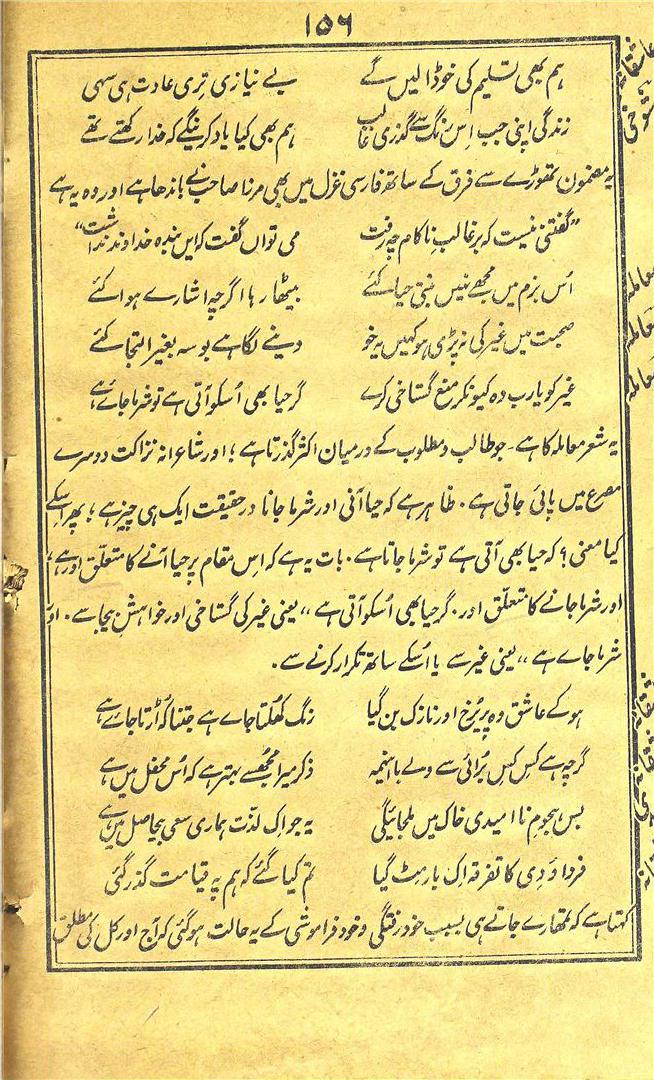 ۱۵۶
ہم بھی تسلیم کی خو ڈالیں گے بے نیازی تری عادت ہی سہی
زندگی اپنی جب اس رنگ سے گذری غالب ہم بھی کیا یاد کرینگے کہ خدا رکھتے تھے
یہ مضمون تھوڑے سے فرق کے ساتھ فارسی غزل میں بھی مرزا صاحب نے باندھا ہے اور وہ یہ ہے
"گفتنی نیست کہ بر غالب ناکام چہ رفت می تواں گفت کہ ایں بندہ خداوند نداشت"
اُس بزم میں مجھے نہیں بنتی حیا کئے بیٹھا رہا اگرچہ اشارے ہوا کئے
صحبت میں غیر کی نہ پڑی ہو کہیں یہ خو دینے لگا ہے بوسہ بغیر التجا کئے
غیر کو یارب وہ کیونکر منع گستاخی کرے گر حیا بھی اُسکو آتی ہے تو شرما جائے ہے
یہ شعر معاملہ کا ہے ۔ جو طالب و مطلوب کے درمیان اکثر گذرتا ہے ؛ اور شاعرانہ نزاکت دوسرے
مصرع میں پائی جاتی ہے ۔ ظاہر ہے کہ حیا آنی اور شرما جانا درحقیقت ایک ہی چیز ہے ؛ پھر اسکے
کیا معنی ؟ کہ حیا بھی آتی ہے تو شرما جاتا ہے ۔ بات یہ ہے کہ اس مقام پر حیا آنے کا متعلّق اور ہے ؛
اور شرما جانے کا متعلّق اور ۔ گر حیا بھی اُسکو آتی ہے ،، یعنی غیر کی گستاخی اور خواہش بیجا سے ۔ اور
شرما جاے ہے ،، یعنی غیر سے یا اُسکے ساتھ تکرار کرنے سے ۔
ہو کے عاشق وہ پریرخ اور نازک بن گیا رنگ کھُلتا جاے ہے جتنا کہ اُڑتا جائے ہے
گرچہ ہے کس کس برُائی سے ولے با اینہمہ ذکر میرا مجھسے بہتر ہے کہ اُس محفل میں ہے
بس ہجوم نا امیدی خاک میں ملجائیگی یہ جو اک لذّت ہماری سعی بیحاصل میں ہے
فردا و دی کا تفرقہ اک بار مٹ گیا تم کیا گئے کہ ہم پہ قیامت گذر گئی
کہتا ہے کہ تمھارے جاتے ہی بسبب خود رفتگی و خود فراموشی کے یہ حالت ہو گئی کہ آج اور کل کی مطلق
عاشقانہ
شوخی
معاملہ
معاملہ
معاملہ